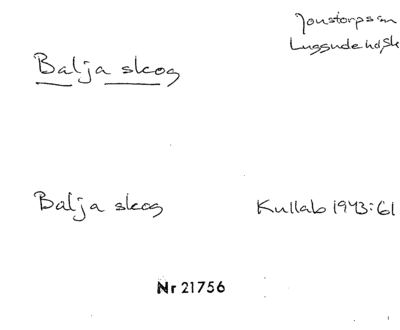 Jonstorps sn
Luggude hd, Sk
Balja skog
Balja skog Kullab 1943:61
Nr 21756